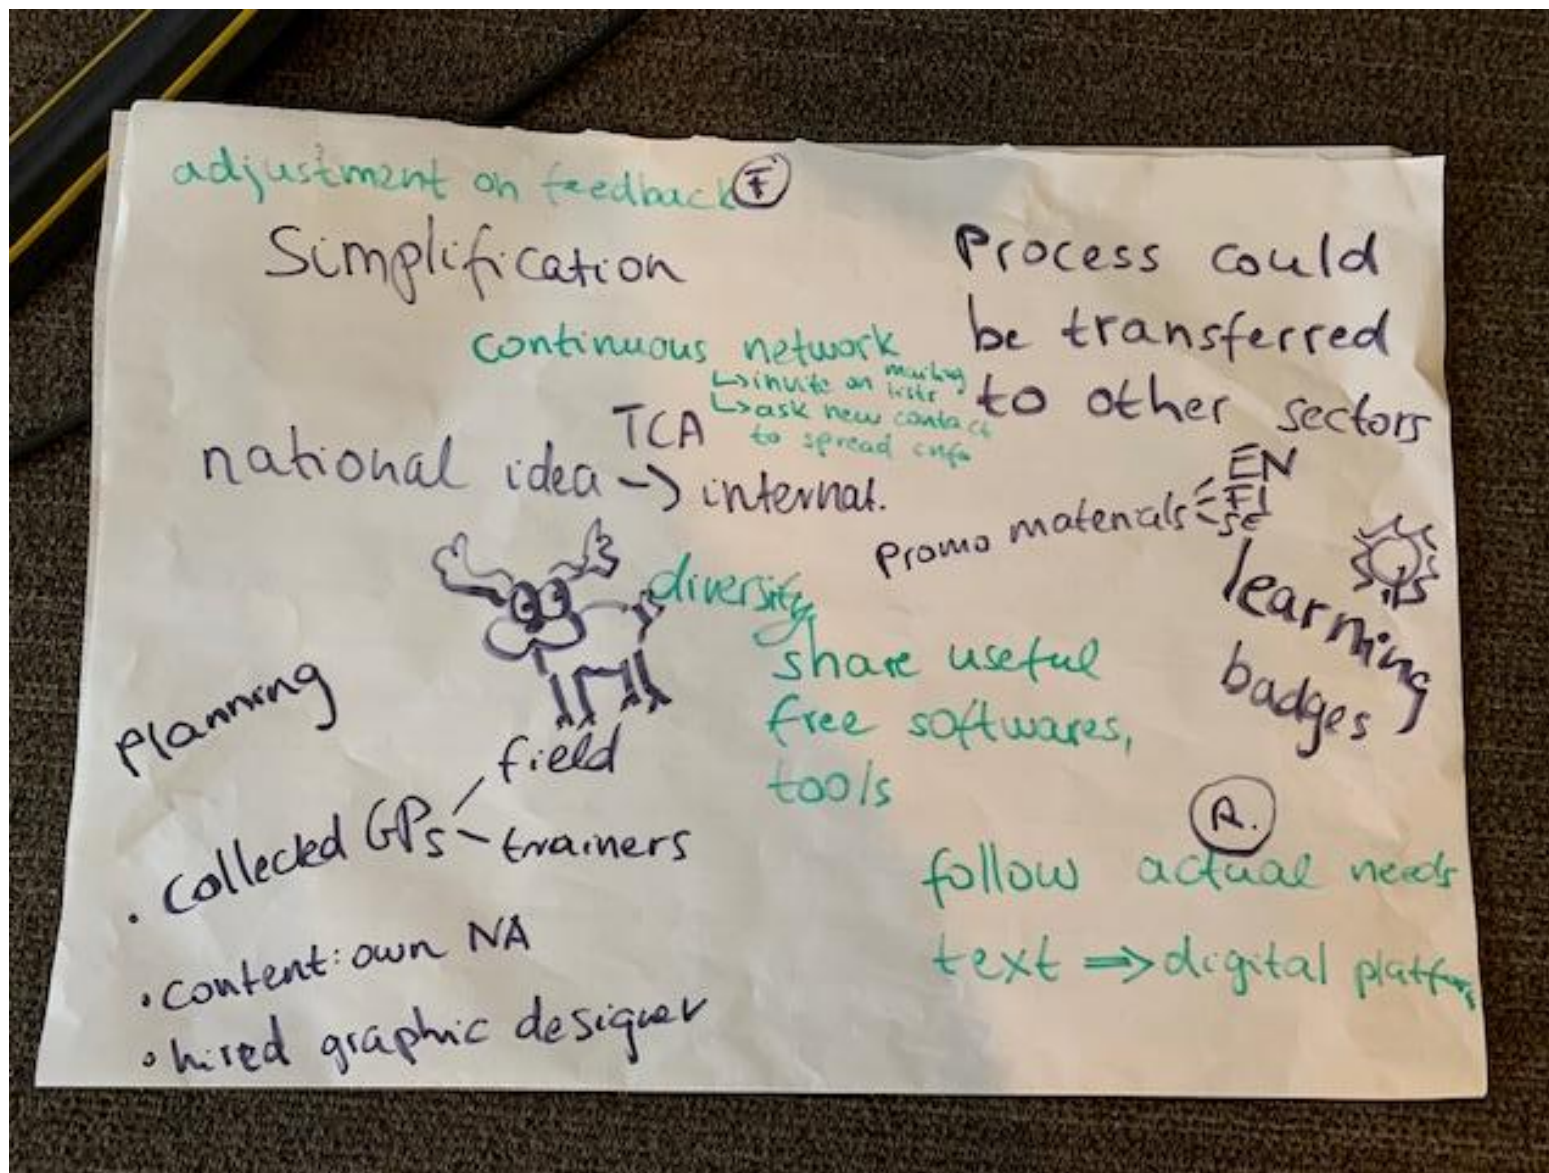 adjustment on feedback F
Simplification
Process could
be transferred
to other sectors
continuous network
↳ invite on mailing lists
↳ ask new contact
to spread info
TCA
national idea → internat.
Promo materials
EN
FI
SE
learning
badges
diversity,
share useful
free softwares,
tools
Planning
• Collected GPs
field
trainers
• Content: own NA
• hired graphic designer
A.
follow actual needs
text ⇒ digital platform